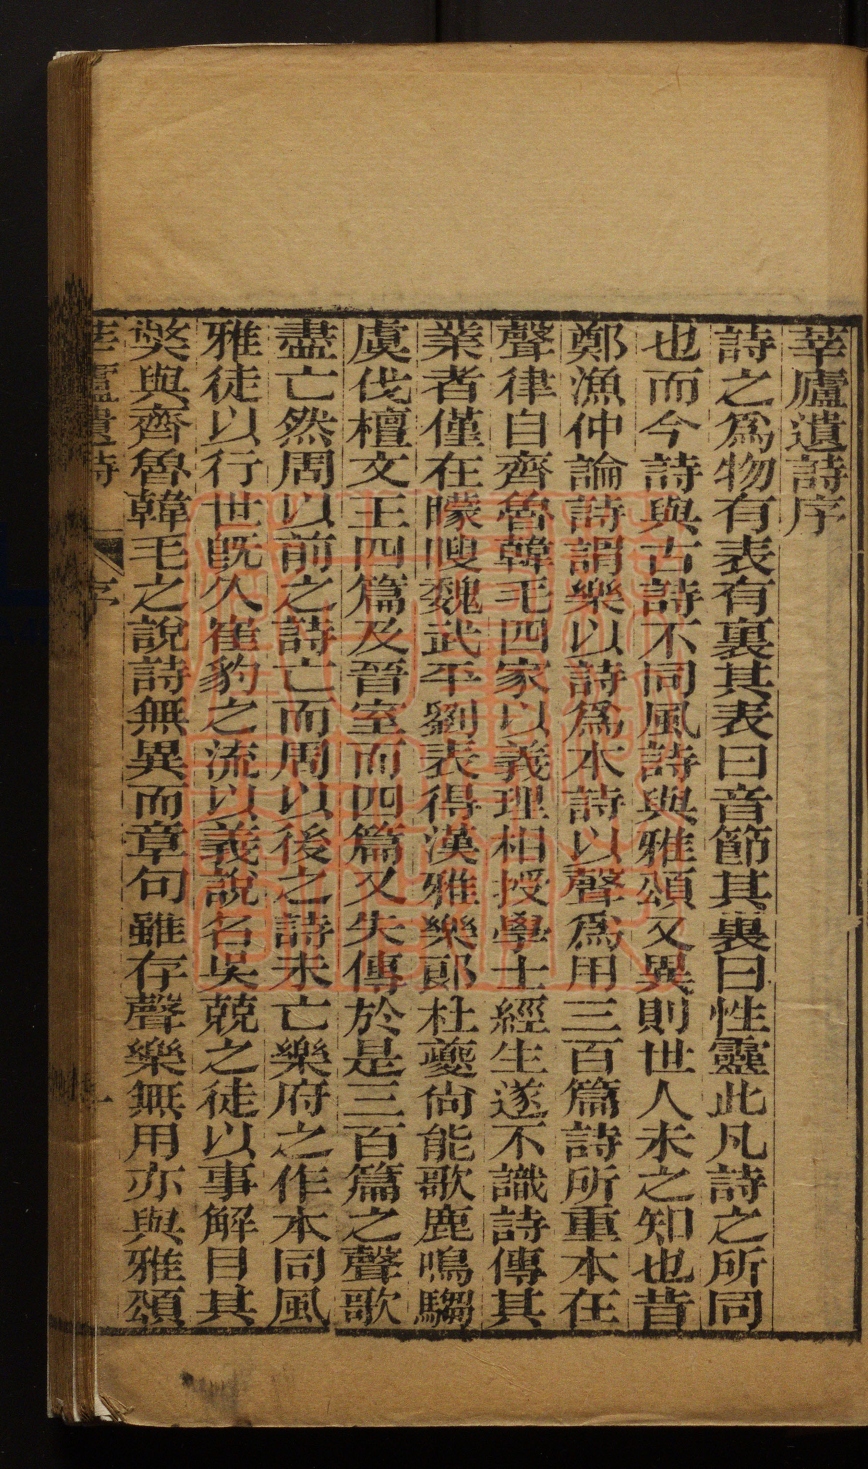 莘廬遺詩序
詩之爲物有表有裏其表曰音節其裏曰性靈此凡詩之所同
也而今詩與古詩不同風詩與雅頌又異則世人未之知也昔
鄭漁仲論詩謂樂以詩爲本詩以聲爲用三百篇詩所重本在
聲律自齊魯韓毛四家以義理相授學士經生遂不識詩傳其
業者僅在矇瞍魏武平劉表得漢雅樂郎杜夔尙能歌鹿鳴騶
虞伐檀文王四篇及晉室而四篇又失傳於是三百篇之聲歌
盡亡然周以前之詩亡而周以後之詩未亡樂府之作本同風
雅徒以行世旣久崔豹之流以義說名吳兢之徒以事解目其
獘與齊魯韓毛之說詩無異而章句雖存聲樂無用亦與雅頌
莘廬遺詩 序 一